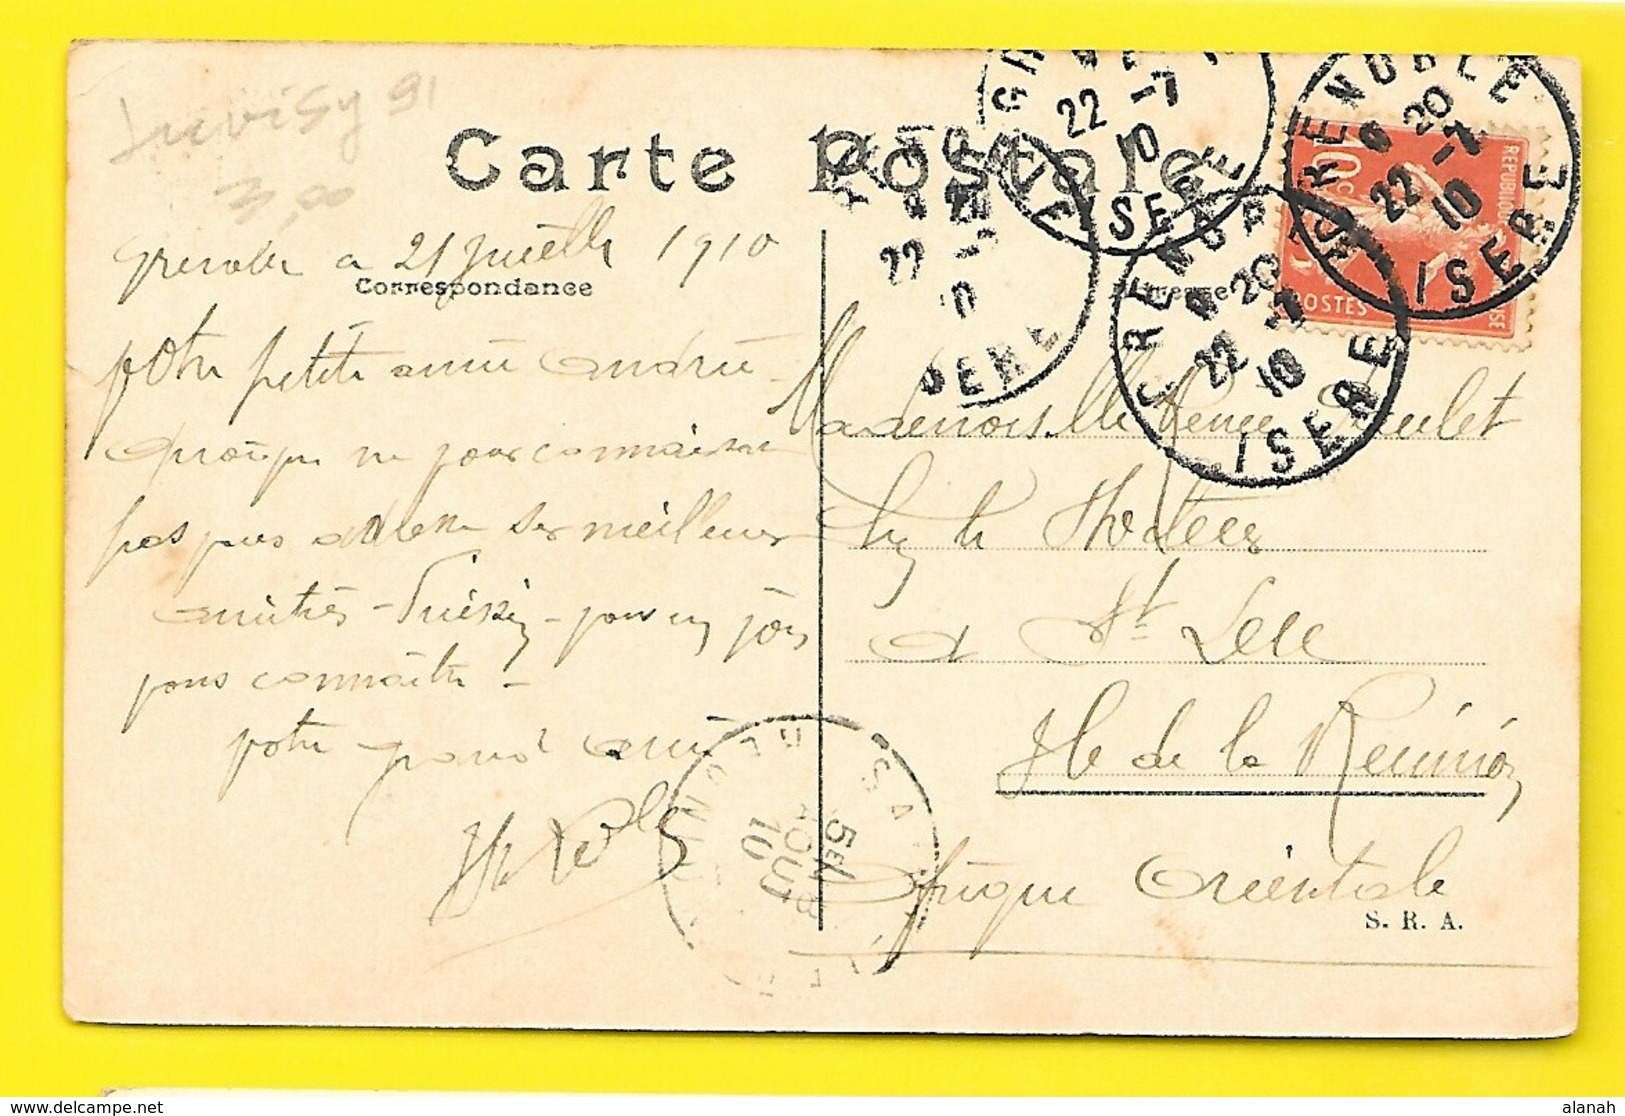 Juvisy 91
3,00
Carte Postale
Grenoble a 21 Juillet 1910
Correspondance
votre petite amie Andrée
quoique ne vous connaissant
pas vous adresse ses meilleures
amitiés - un jour
vous connaître -
votre grand ami
Mademoiselle Renée
chez
a St Leu
Ile de la Réunion
Afrique Orientale
S. R. A.
GRENOBLE
20
22 -7
10
ISERE
GRENOBLE
20
22 -7
10
ISERE
22 -7
10
ISERE
22
10
REPUBLIQUE FRANÇAISE
10c
POSTES
5E
AOUT
10
alanah